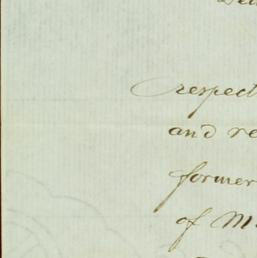 respect
and re
former
of M